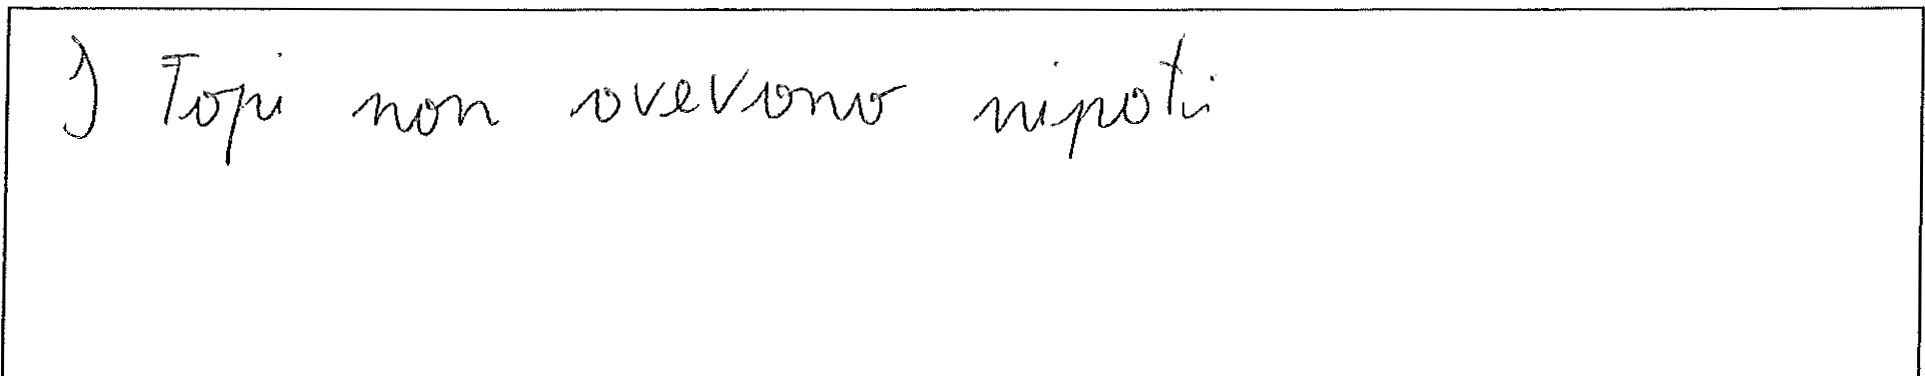 I Topi non avevano nipoti